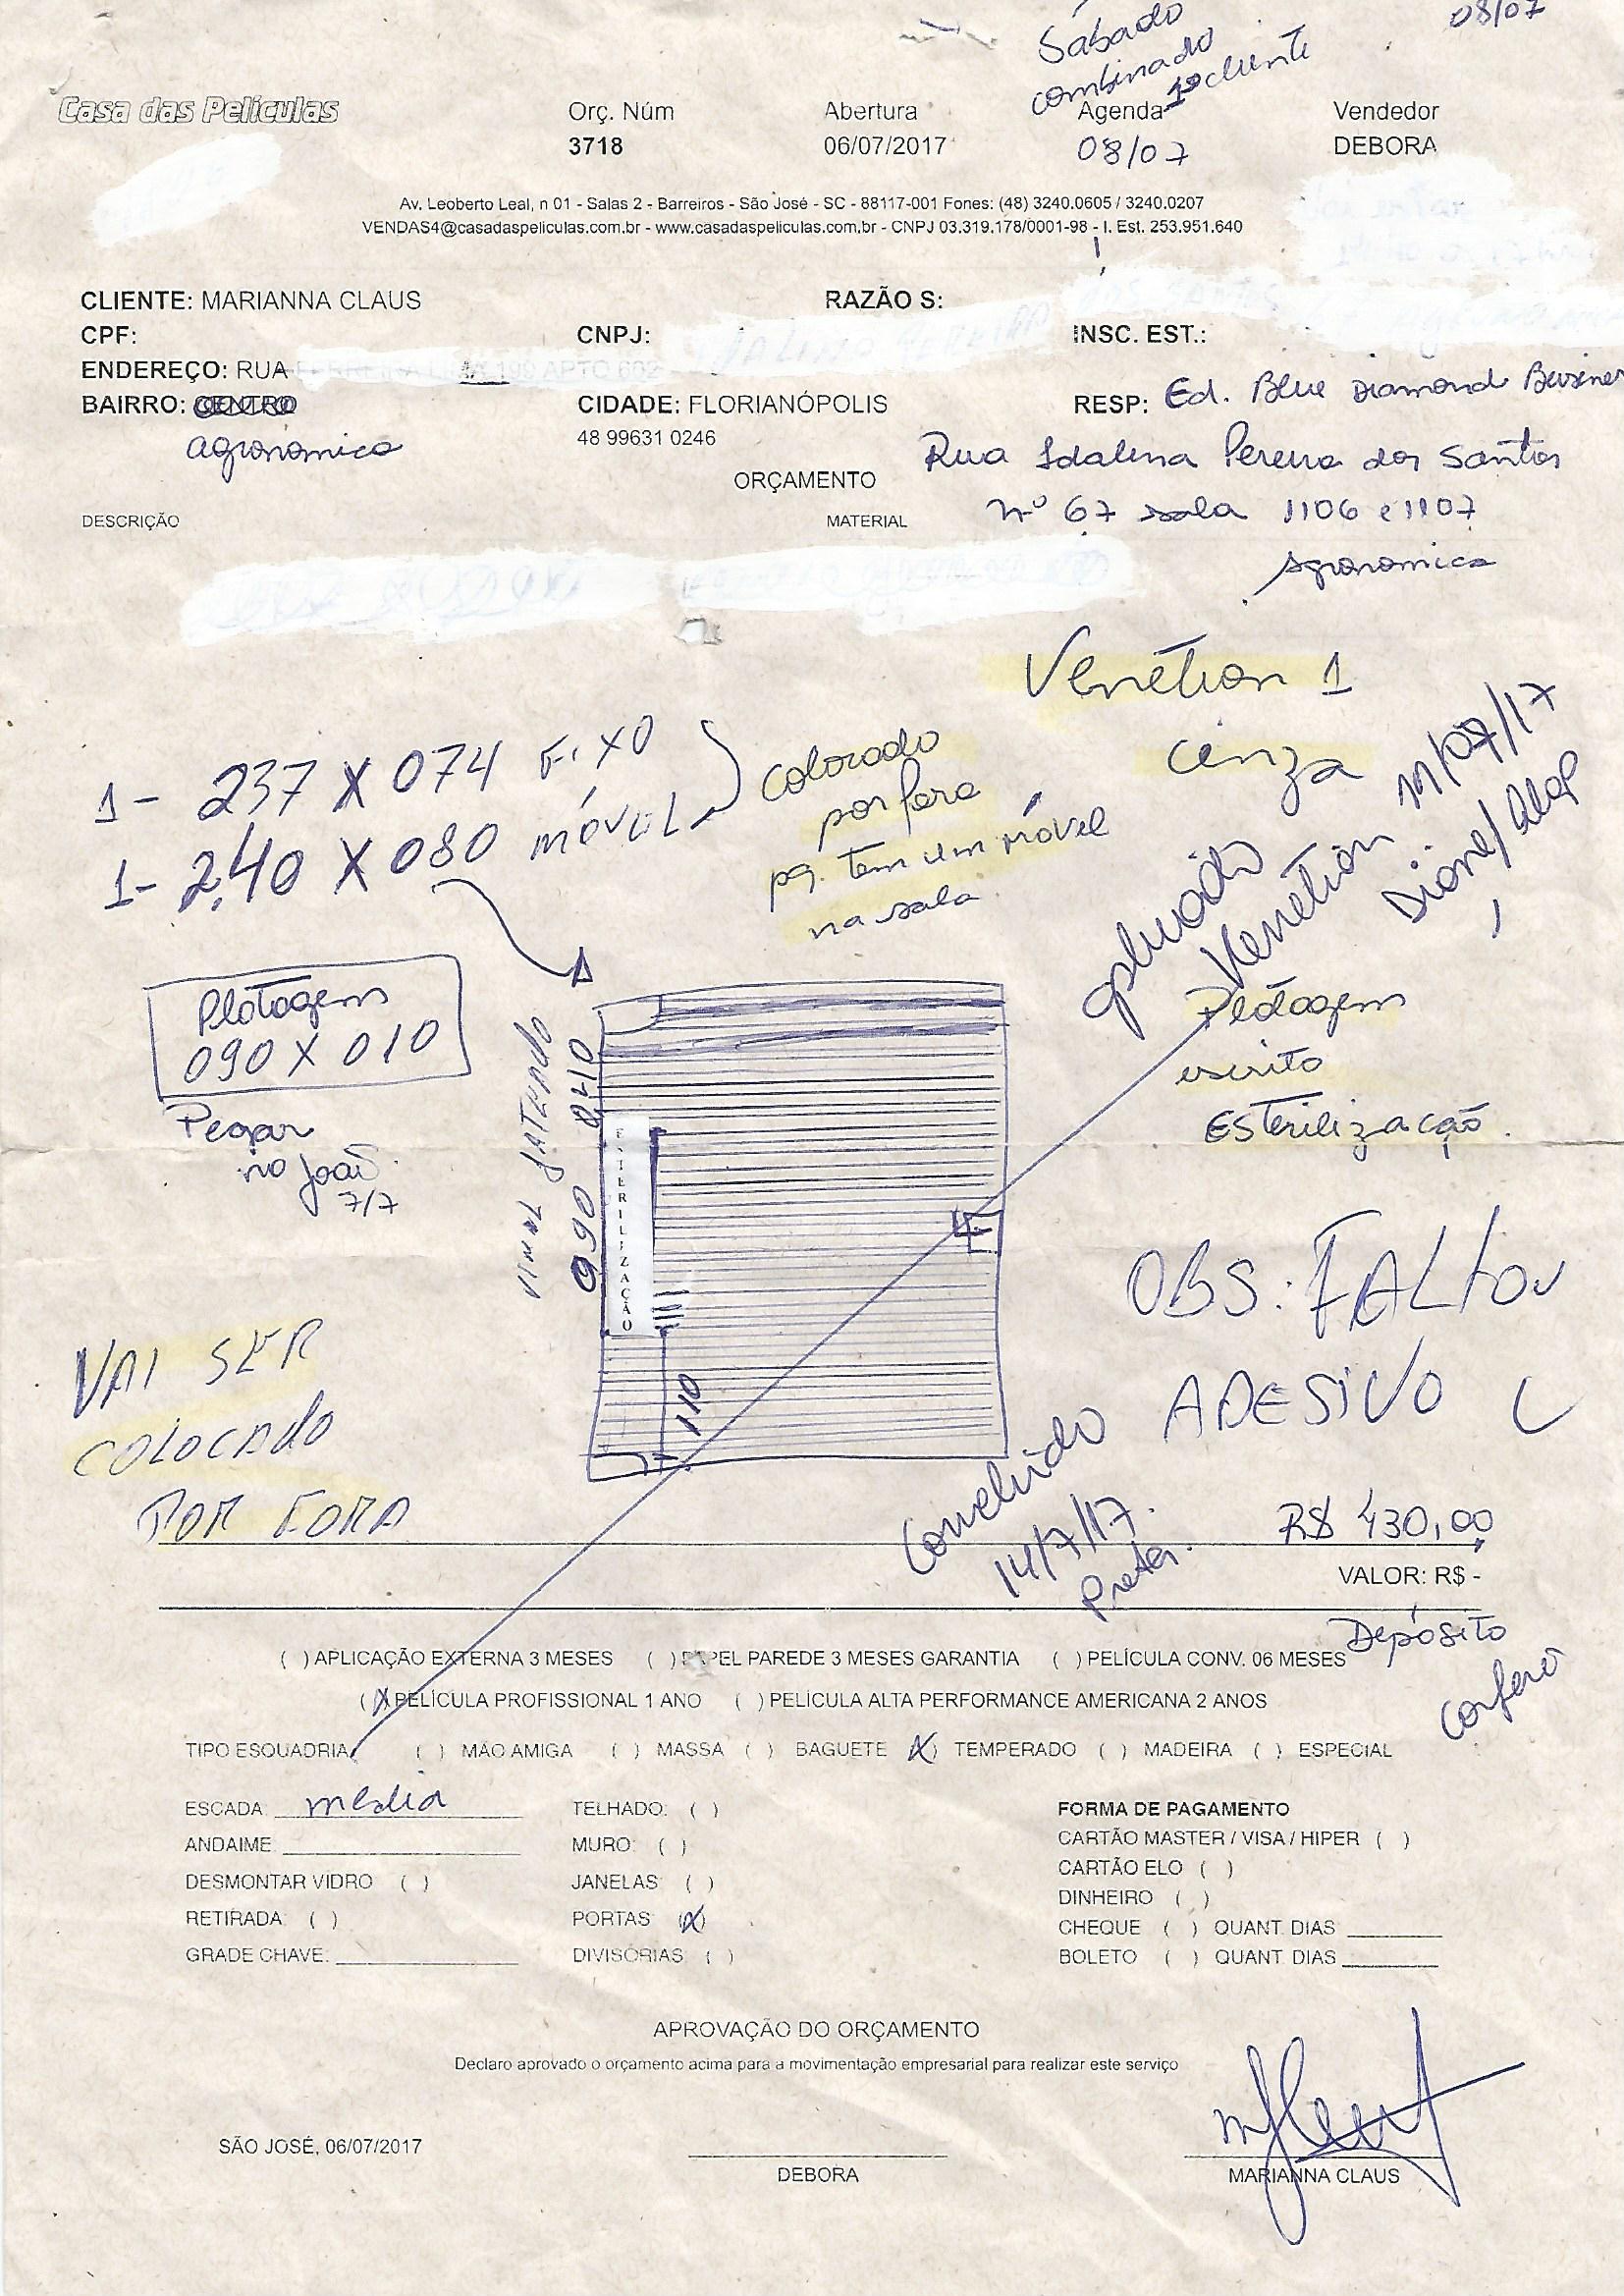 08/07
Sábado
combinado
1º cliente
Casa das Películas
Orç. Núm Abertura Agenda Vendedor
3718 06/07/2017 08/07 DEBORA
Av. Leoberto Leal, n 01 - Salas 2 - Barreiros - São José - SC - 88117-001 Fones: (48) 3240.0605 / 3240.0207
VENDAS4@casadaspeliculas.com.br - www.casadaspeliculas.com.br - CNPJ 03.319.178/0001-98 - I. Est. 253.951.640
CLIENTE: MARIANNA CLAUS RAZÃO S:
CPF: CNPJ: INSC. EST.:
ENDEREÇO: RUA
BAIRRO: CENTRO CIDADE: FLORIANÓPOLIS RESP: Ed. Blue Diamond
agronomica 48 99631 0246
Rua Idalina Pereira dos Santos
ORÇAMENTO
DESCRIÇÃO MATERIAL nº 67 sala 1106 e 1107
agronomica
Venetion 1
cinza
1 - 237 X 074 FIXO
1 - 2,40 X 080 MÓVEL
Colocado
por fora
pq. tem um móvel
na sala
aplicado
Venetion 11/07/17
Plotagem
090 X 010
Pegar
no João
7/7
Plotagem
escrito
Esterilização.
VINIL JATEADO
990
ESTERILIZAÇÃO
110
OBS: FALTOU
ADESIVO
VAI SER
COLOCADO
POR FORA
Concluído
14/7/17.
R$ 430,00
VALOR: R$ -
Depósito
( ) APLICAÇÃO EXTERNA 3 MESES ( ) PAPEL PAREDE 3 MESES GARANTIA ( ) PELÍCULA CONV. 06 MESES
(X) PELÍCULA PROFISSIONAL 1 ANO ( ) PELÍCULA ALTA PERFORMANCE AMERICANA 2 ANOS
TIPO ESQUADRIA ( ) MÃO AMIGA ( ) MASSA ( ) BAGUETE (X) TEMPERADO ( ) MADEIRA ( ) ESPECIAL
ESCADA: media TELHADO: ( ) FORMA DE PAGAMENTO
ANDAIME: MURO: ( ) CARTÃO MASTER / VISA / HIPER ( )
CARTÃO ELO ( )
DESMONTAR VIDRO ( ) JANELAS: ( )
DINHEIRO ( )
RETIRADA: ( ) PORTAS (X)
CHEQUE ( ) QUANT. DIAS
GRADE CHAVE: DIVISÓRIAS: ( ) BOLETO ( ) QUANT. DIAS
APROVAÇÃO DO ORÇAMENTO
Declaro aprovado o orçamento acima para a movimentação empresarial para realizar este serviço
SÃO JOSÉ, 06/07/2017
DEBORA MARIANNA CLAUS